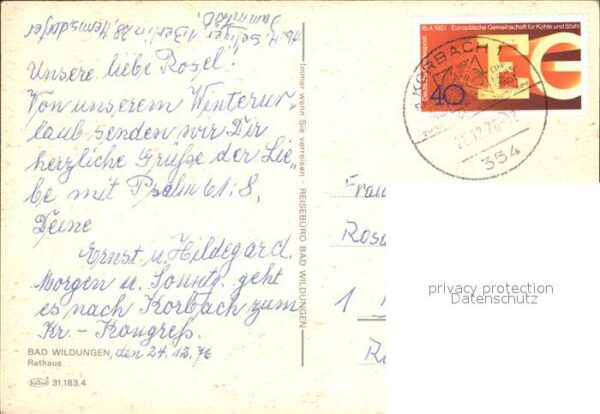 1 Berlin 28, Hermsdorfer
Unsere liebe Rosel!
Von unserem Winterur-
laub senden wir Dir
herzliche Grüße der Lie-
be mit Psalm 61:8,
Deine
Ernst u. Hildegard.
Morgen u. Sonnt. geht
es nach Korbach zum
Kr. - Kongreß.
BAD WILDUNGEN, den 24.12.76
Rathaus
31.183.4
Immer wenn Sie verreisen - REISEBÜRO BAD WILDUNGEN
18.4.1951 Europäische Gemeinschaft für Kohle und Stahl
Deutsche Bundespost
EG
40
KORBACH 1
26.12.76-12
354
Frau
Ros
1
R
privacy protection
Datenschutz